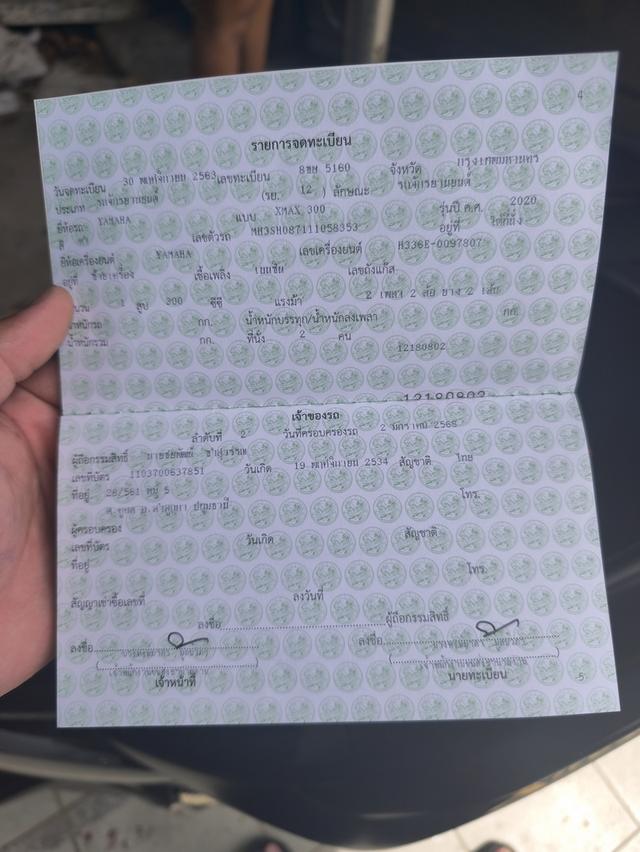 4
รายการจดทะเบียน
วันจดทะเบียน 30 พฤศจิกายน 2563 เลขทะเบียน 8ขษ 5160 จังหวัด กรุงเทพมหานคร
ประเภท รถจักรยานยนต์ (รย. 12 ) ลักษณะ รถจักรยานยนต์
ยี่ห้อรถ YAMAHA แบบ XMAX 300 รุ่นปี ค.ศ. 2020
สี เลขตัวรถ MH3SH087111058353 อยู่ที่ ใต้ที่นั่ง
ยี่ห้อเครื่องยนต์ YAMAHA เลขเครื่องยนต์ H336E-0097807
อยู่ที่ ข้างเครื่อง เชื้อเพลิง เบนซิน เลขถังแก๊ส
จำนวน 1 สูบ 300 ซีซี แรงม้า 2 เพลา 2 ล้อ ยาง 2 เส้น
น้ำหนักรถ กก. น้ำหนักบรรทุก/น้ำหนักลงเพลา กก.
น้ำหนักรวม กก. ที่นั่ง 2 คน
12180802
12180802
เจ้าของรถ
ลำดับที่ 2 วันที่ครอบครองรถ 2 มกราคม 2568
ผู้ถือกรรมสิทธิ์
เลขที่บัตร 1103700637851 วันเกิด 19 พฤศจิกายน 2534 สัญชาติ ไทย
ที่อยู่ 28/561 หมู่ 5 โทร.
อ.ลำลูกกา ปทุมธานี
ผู้ครอบครอง
เลขที่บัตร วันเกิด สัญชาติ
ที่อยู่ โทร.
สัญญาเช่าซื้อเลขที่ ลงวันที่
ลงชื่อ ผู้ถือกรรมสิทธิ์
ลงชื่อ ลงชื่อ
เจ้าหน้าที่ นายทะเบียน
5